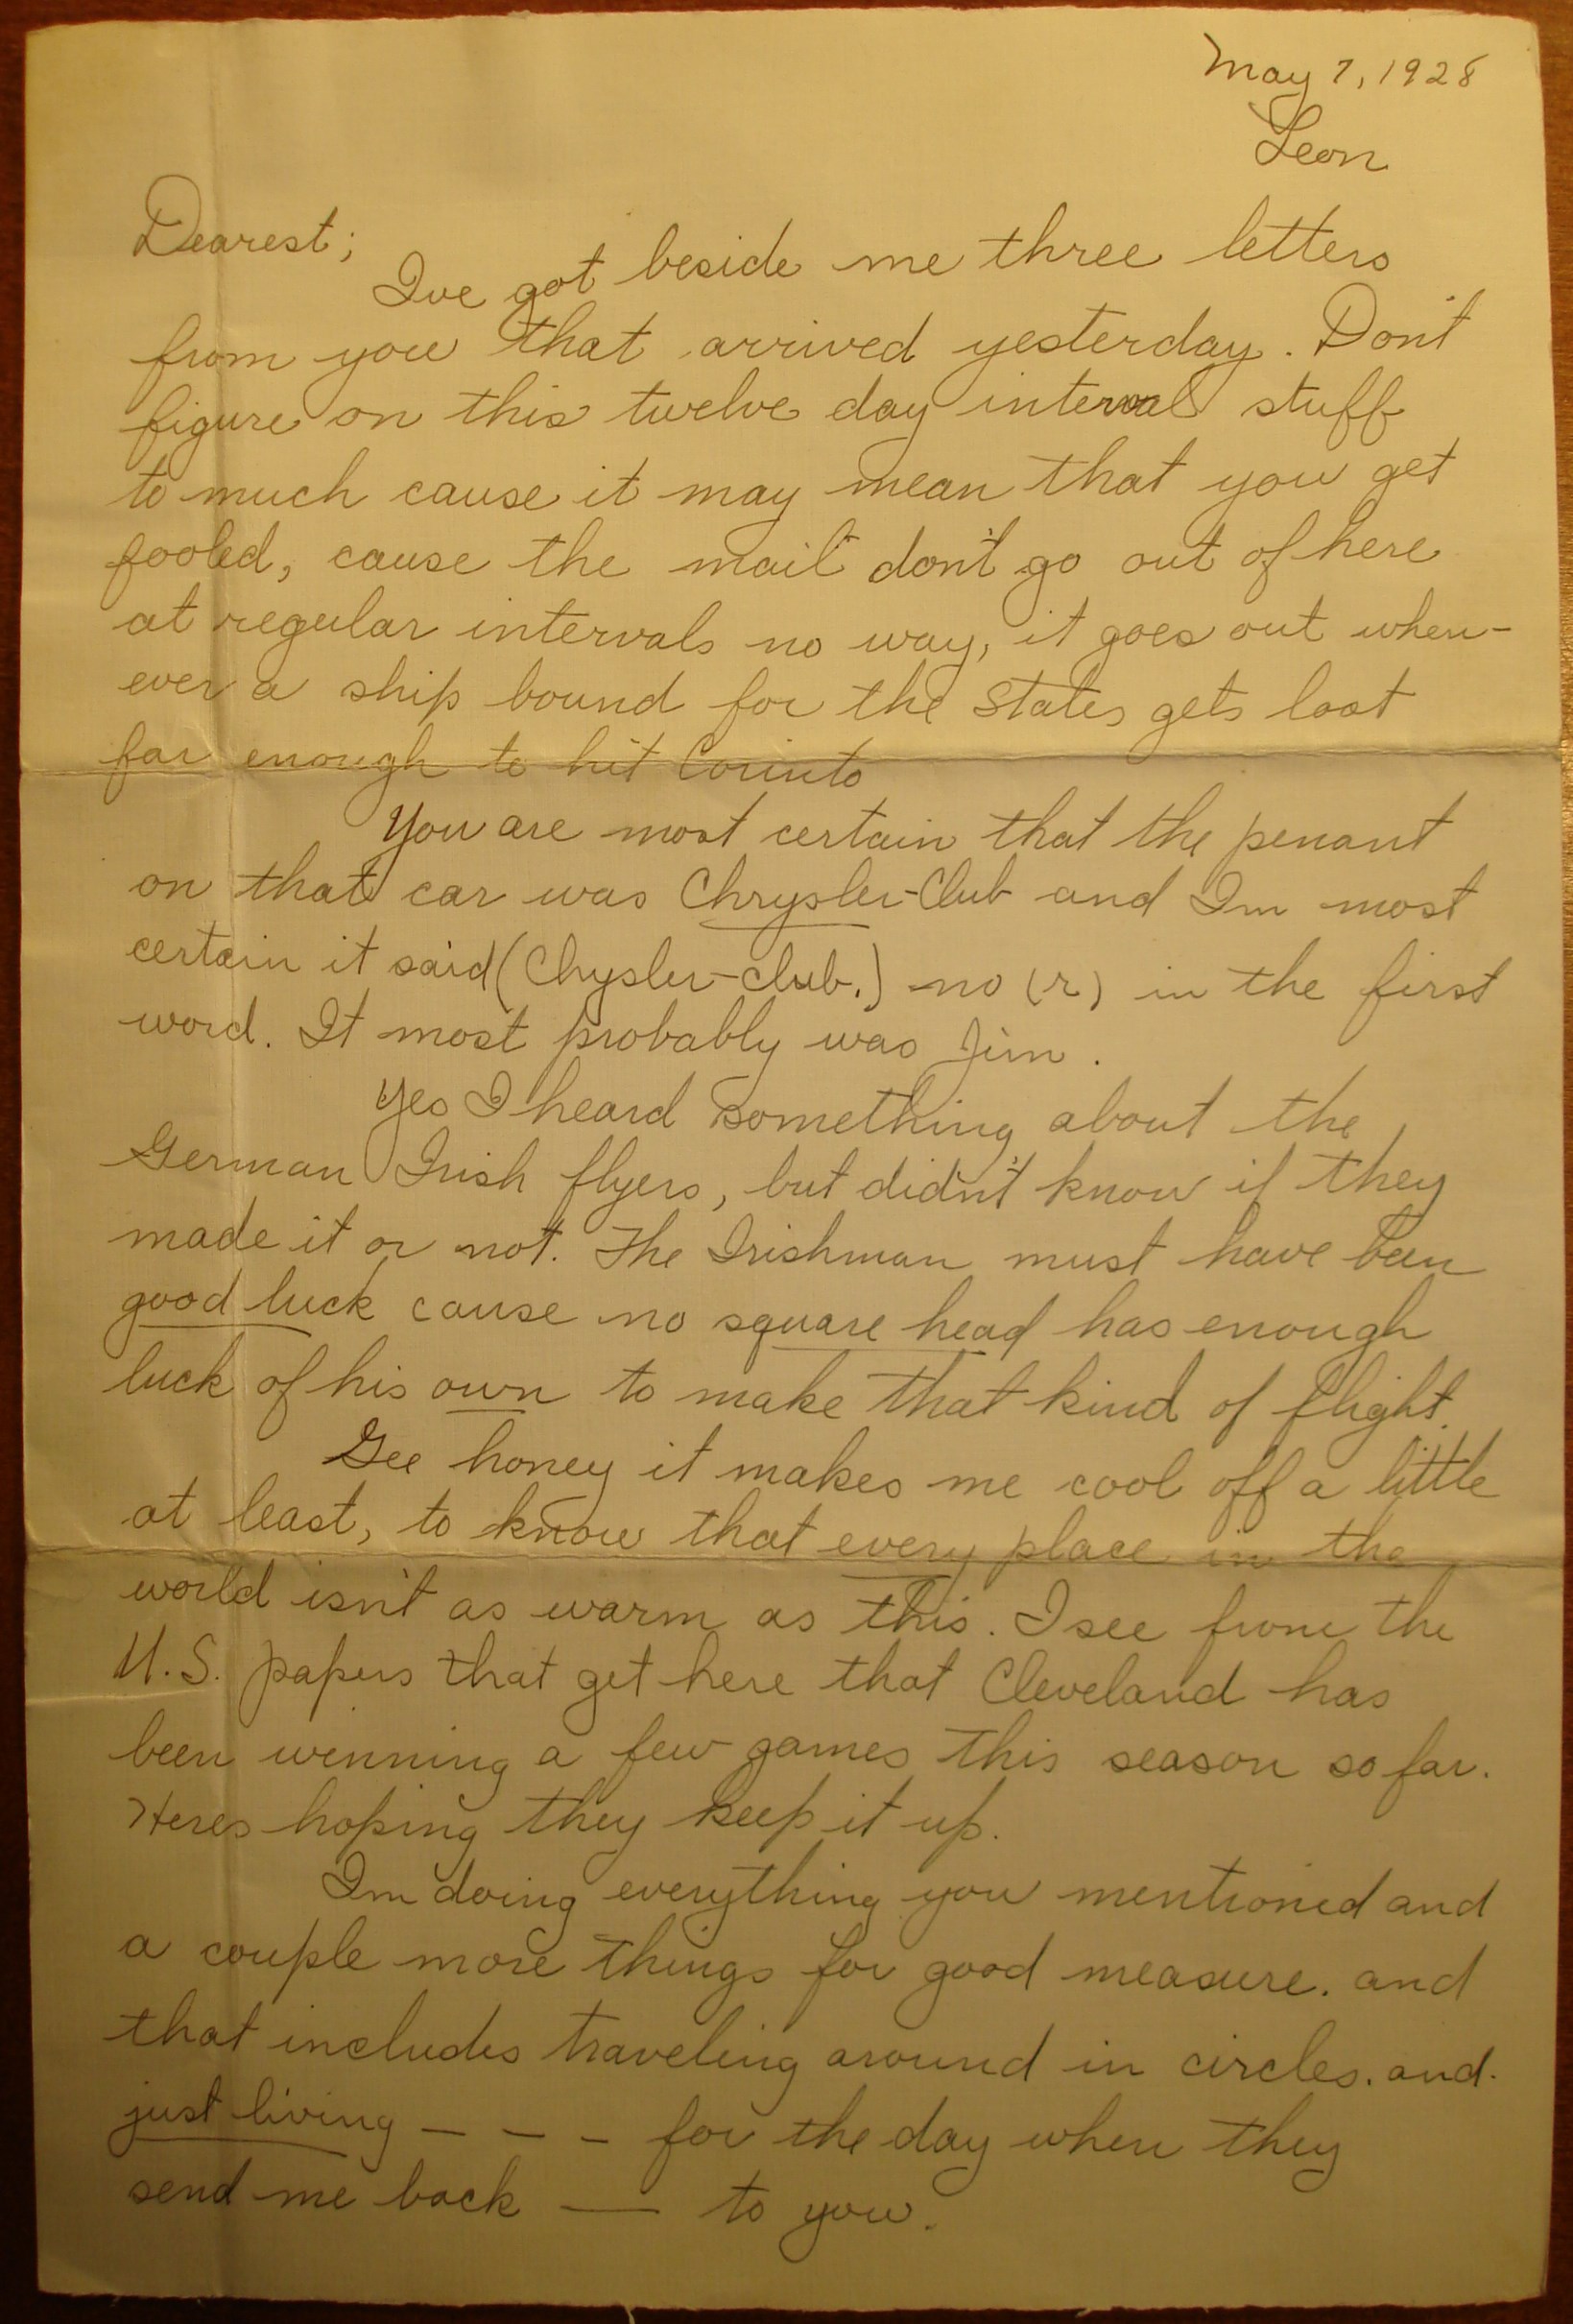 May 7, 1928
Leon
Dearest;
Ive got beside me three letters
from you that arrived yesterday. Don't
figure on this twelve day interval stuff
to much cause it may mean that you get
fooled, cause the mail don't go out of here
at regular intervals no way, it goes out when-
ever a ship bound for the States gets lost
far enough to hit Corinto
You are most certain that the penant
on that car was Chrysler-Club and Im most
certain it said (Chysler-club.) no (r) in the first
word. It most probably was Jim.
Yes I heard something about the
German Irish flyers, but didn't know if they
made it or not. The Irishman must have been
good luck cause no square head has enough
luck of his own to make that kind of flight.
Gee honey it makes me cool off a little
at least, to know that every place in the
world isn't as warm as this. I see from the
U.S. papers that get here that Cleveland has
been winning a few games this season so far.
Heres hoping they keep it up.
Im doing everything you mentioned and
a couple more things for good measure. and
that includes traveling around in circles. and.
just living - - - for the day when they
send me back — to you.